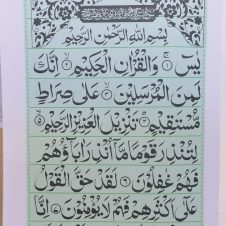 بِسْمِ اللّٰهِ الرَّحْمٰنِ الرَّحِيْمِ
يٰسٓ ۚ‏﴿۱﴾ وَالْقُرْاٰنِ الْحَكِيْمِ ۙ‏﴿۲﴾ اِنَّكَ
لَمِنَ الْمُرْسَلِيْنَۙ‏﴿۳﴾ عَلٰى صِرَاطٍ
مُّسْتَقِيْمٍؕ‏﴿۴﴾ تَنْزِيْلَ الْعَزِيْزِ الرَّحِيْمِۙ‏﴿۵﴾
لِتُنْذِرَ قَوْمًا مَّاۤ اُنْذِرَ اٰبَآؤُهُمْ
فَهُمْ غٰفِلُوْنَ‏﴿۶﴾ لَقَدْ حَقَّ الْقَوْلُ
عَلٰٓى اَكْثَرِهِمْ فَهُمْ لَا يُؤْمِنُوْنَ‏﴿۷﴾ اِنَّا